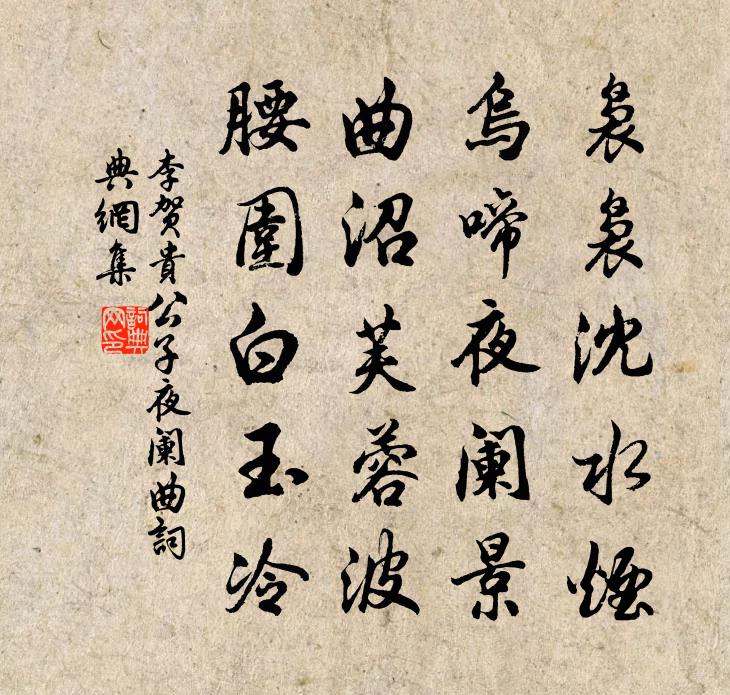 裊裊沈水煙
烏啼夜闌景
曲沼芙蓉波
腰圍白玉冷
李賀貴公子夜闌曲詞
典網集
詞典
网印